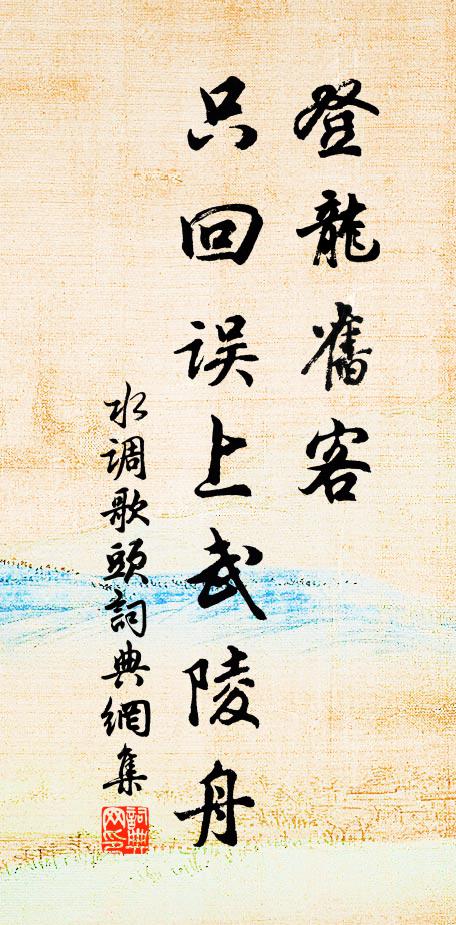 登龍舊客
只回误上武陵舟
水调歌頭詞典網集
詞典网印